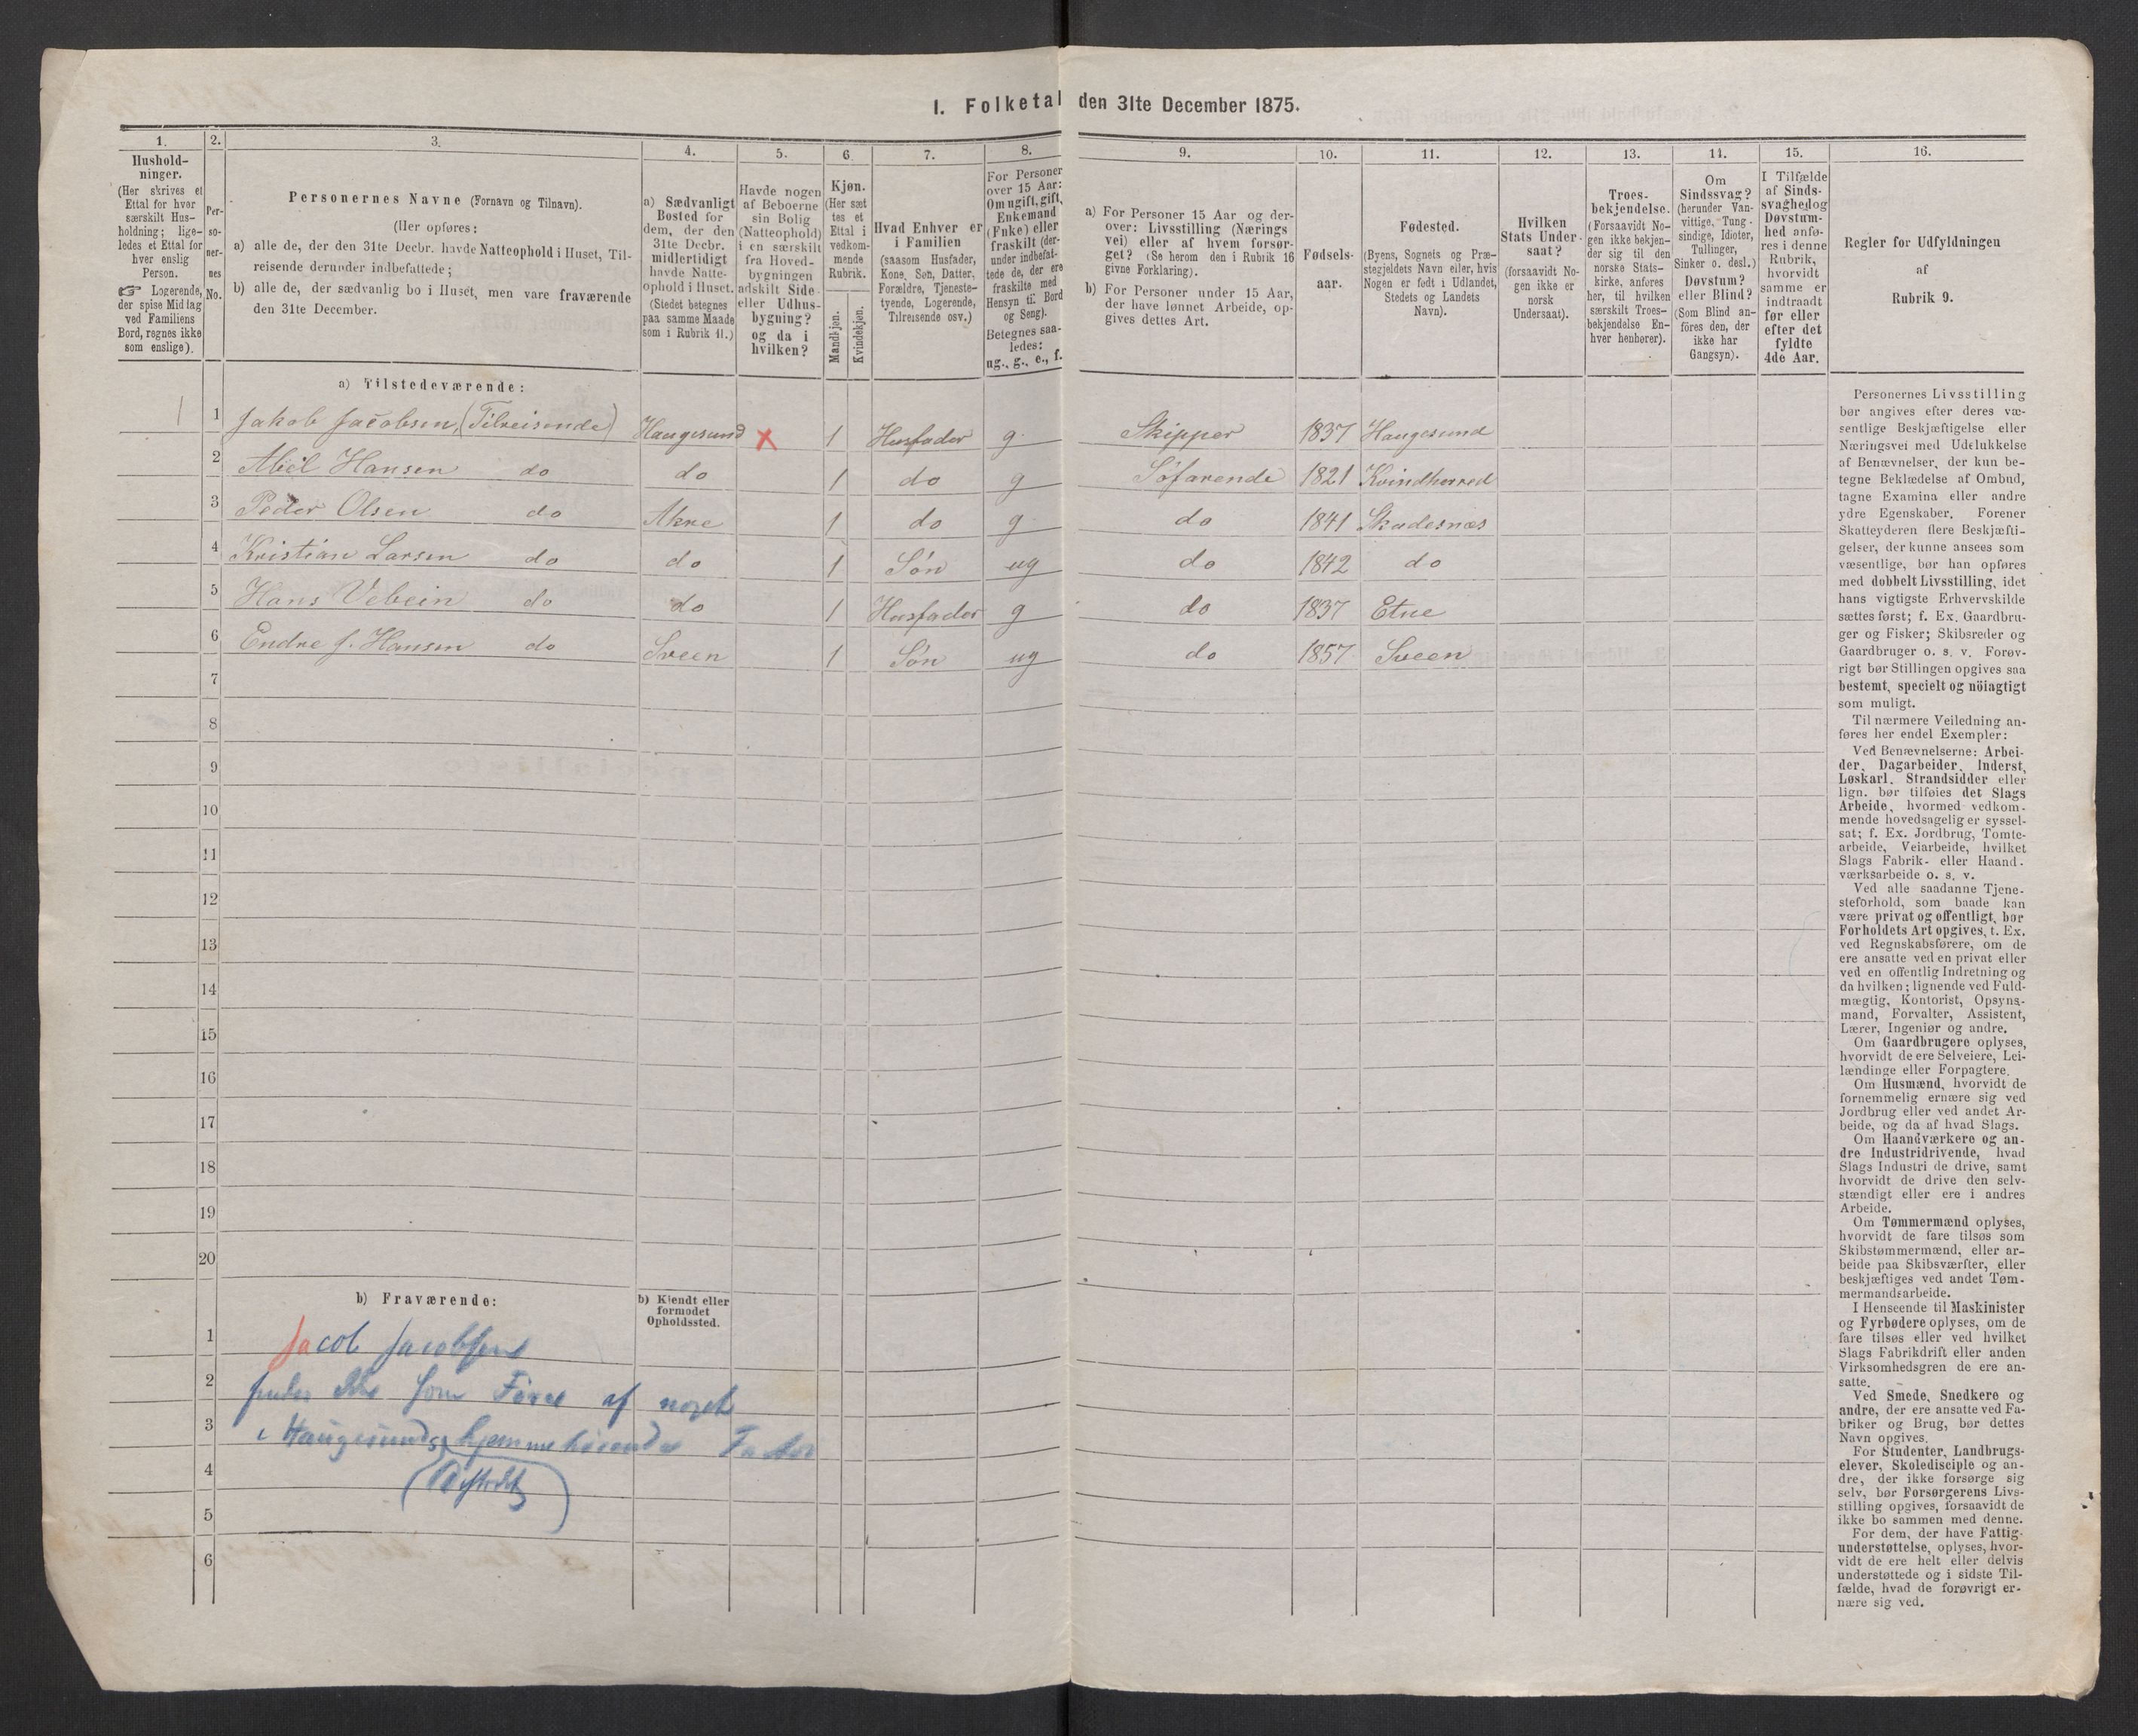 1. Folketal den 31te December 1875.
1.
Hushold-
ninger.
(Her skrives et
Ettal for hver
særskilt Hus-
holdning; lige-
ledes et Ettal for
hver enslig
Person.
☞ Logerende,
der spise Middag
ved Familiens
Bord, regnes ikke
som enslige).
2.
Per-
so-
ner-
nes
No.
3.
Personernes Navne (Fornavn og Tilnavn).
(Her opføres:
a) alle de, der den 31te Decbr. havde Natteophold i Huset, Til-
reisende derunder indbefattede;
b) alle de, der sædvanlig bo i Huset, men vare fraværende
den 31te December.
4.
a) Sædvanligt
Bosted for
dem, der den
31te Decbr.
midlertidigt
havde Natte-
ophold i Huset.
(Stedet betegnes
paa samme Maade
som i Rubrik 11.)
5.
Havde nogen
af Beboerne
sin Bolig
(Natteophold)
i en særskilt
fra Hoved-
bygningen
adskilt Side-
eller Udhus-
bygning?
og da i
hvilken?
6.
Kjøn.
(Her sæt
tes et
Ettal i
vedkom-
mende
Rubrik.
Mandkjøn.
Kvindekjøn.
7.
Hvad Enhver er
i Familien
(saasom Husfader,
Kone, Søn, Datter,
Forældre, Tjeneste-
tyende, Logerende,
Tilreisende osv.)
8.
For Personer
over 15 Aar:
Om ugift, gift,
Enkemand
(Enke) eller
fraskilt (der-
under indbefat-
tede de, der ere
fraskilte med
Hensyn til Bord
og Seng).
Betegnes saa-
ledes:
ug., g., e., f.
9.
a) For Personer 15 Aar og der-
over: Livsstilling (Nærings
vei) eller af hvem forsør-
get? (Se herom den i Rubrik 16
givne Forklaring).
b) For Personer under 15 Aar,
der have lønnet Arbeide, op-
gives dettes Art.
10.
Fødsels-
aar.
11.
Fødested.
(Byens, Sognets og Præ-
stegjeldets Navn eller, hvis
Nogen er født i Udlandet,
Stedets og Landets
Navn).
12.
Hvilken
Stats Under-
saat?
(forsaavidt No-
gen ikke er
norsk
Undersaat).
13.
Troes-
bekjendelse.
(Forsaavidt No-
gen ikke bekjen-
der sig til den
norske Stats-
kirke, anføres
her, til hvilken
særskilt Troes-
bekjendelse En-
hver henhører).
14.
Om
Sindssvag?
(herunder Van-
vittige, Tung-
sindige, Idioter,
Tullinger,
Sinker o. desl.)
Døvstum?
eller Blind?
(Som Blind an-
føres den, der
ikke har
Gangsyn).
15.
I Tilfælde
af Sinds-
svaghed og
Døvstum-
hed anfø-
res i denne
Rubrik,
hvorvidt
samme er
indtraadt
før eller
efter det
fyldte
4de Aar.
16.
Regler for Udfyldningen
af
Rubrik 9.
a) Tilstedeværende:
1 1 Jakob Jacobsen, (Tilreisende) Haugesund x 1 Husfader g Skipper 1837 Haugesund
2 Abel Hansen do do 1 do g Søfarende 1821 Kvindherred
3 Peder Olsen do Akre 1 do g do 1841 Skudesnæs
4 Kristian Larsen do do 1 Søn ug do 1842 do
5 Hans Vebein do do 1 Husfader g do 1837 Etne
6 Endre J. Hansen do Sveen 1 Søn ug do 1857 Sveen
7
8
9
10
11
12
13
14
15
16
17
18
19
20
b) Fraværende:
b) Kjendt eller
formodet
Opholdssted.
1 Jacob Jacobsen
2 findes ikke som Fører af noget
3 i Haugesund hjemmehørende Fartøi
4
5
6
Personernes Livsstilling
bør angives efter deres væ-
sentlige Beskjæftigelse eller
Næringsvei med Udelukkelse
af Benævnelser, der kun be-
tegne Beklædelse af Ombud,
tagne Examina eller andre
ydre Egenskaber. Forener
Skatteyderen flere Beskjæfti-
gelser, der kunne ansees som
væsentlige, bør han opføres
med dobbelt Livsstilling, idet
hans vigtigste Erhvervskilde
sættes først; f. Ex. Gaardbru-
ger og Fisker; Skibsreder og
Gaardbruger o. s. v. Forøv-
rigt bør Stillingen opgives saa
bestemt, specielt og nöiagtigt
som muligt.
Til nærmere Veiledning an-
føres her endel Exempler:
Ved Benævnelserne: Arbei-
der, Dagarbeider, Inderst,
Løskarl, Strandsidder eller
lign. bør tilføies det Slags
Arbeide, hvormed vedkom-
mende hovedsagelig er syssel-
sat; f. Ex. Jordbrug, Tomte-
arbeide, Veiarbeide, hvilket
Slags Fabrik- eller Haand-
værksarbeide o. s. v.
Ved alle saadanne Tjene-
steforhold, som baade kan
være privat og offentligt, bør
Forholdets Art opgives, t. Ex.
ved Regnskabsførere, om de
ere ansatte ved en privat eller
ved en offentlig Indretning og
da hvilken; lignende ved Fuld-
mægtig, Kontorist, Opsyns-
mand, Forvalter, Assistent,
Lærer, Ingeniør og andre.
Om Gaardbrugere oplyses,
hvorvidt de ere Selveiere, Lei-
lændinge eller Forpagtere.
Om Husmænd, hvorvidt de
fornemmelig ernære sig ved
Jordbrug eller ved andet Ar-
beide, og da af hvad Slags.
Om Haandværkere og an-
dre Industridrivende, hvad
Slags Industri de drive, samt
hvorvidt de drive den selv-
stændigt eller ere i andres
Arbeide.
Om Tømmermænd oplyses,
hvorvidt de fare tilsøs som
Skibstømmermænd, eller ar-
beide paa Skibsværfter, eller
beskjæftiges ved andet Tøm-
mermandsarbeide.
I Henseende til Maskinister
og Fyrbødere oplyses, om de
fare tilsøs eller ved hvilket
Slags Fabrikdrift eller anden
Virksomhedsgren de ere an-
satte.
Ved Smede, Snedkere og
andre, der ere ansatte ved Fa-
briker og Brug, bør dettes
Navn opgives.
For Studenter, Landbrugs-
elever, Skoledisciple og an-
dre, der ikke forsørge sig
selv, bør Forsørgerens Livs-
stilling opgives, forsaavidt de
ikke bo sammen med denne.
For dem, der have Fattig-
understøttelse, oplyses, hvor-
vidt de ere helt eller delvis
understøttede og i sidste Til-
fælde, hvad de forøvrigt er-
nære sig ved.